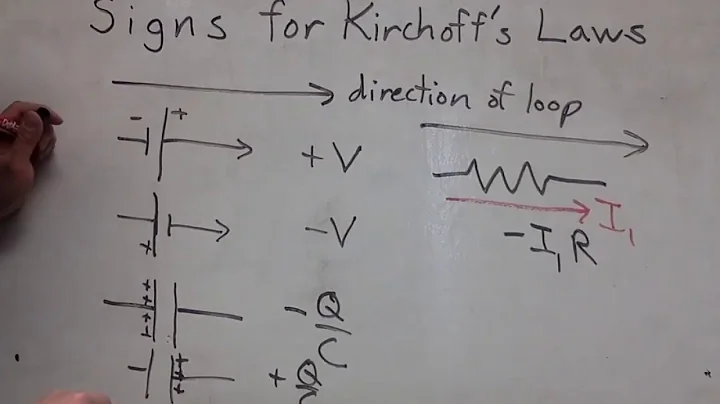 Signs for Kirchoff's Laws
direction of loop
- +
+V
I₁
-I₁R
+
-V
++++
-Q/C
-
+++
+Q